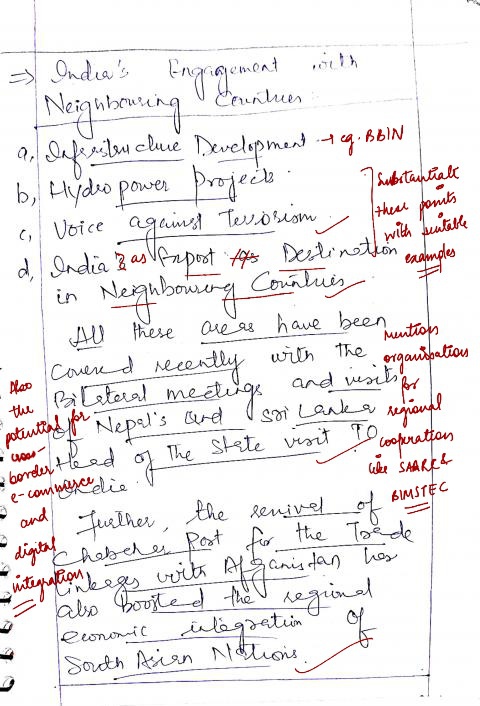 ⇒ India's Engagement with
Neighbouring Countries:
a, Infrastructure Development → eg. BBIN
b, Hydropower Projects.
c, Voice against Terrorism.
d, India as Export Destination
in Neighbouring Countries
Substantiate
these points
with suitable
examples
All these areas have been
covered recently with the
Bilateral meetings and visits
of Nepal's and Sri Lanka
Head of the State visit TO
India.
Mention
organisations
for
regional
cooperation
like SAARC &
BIMSTEC
Also
the
potential for
cross-
border
e-commerce
and
digital
integration
Further, the revival of
Chabahar Port for the Trade
linkages with Afganistan has
also boosted the regional
economic integration of
South Asian Nations.